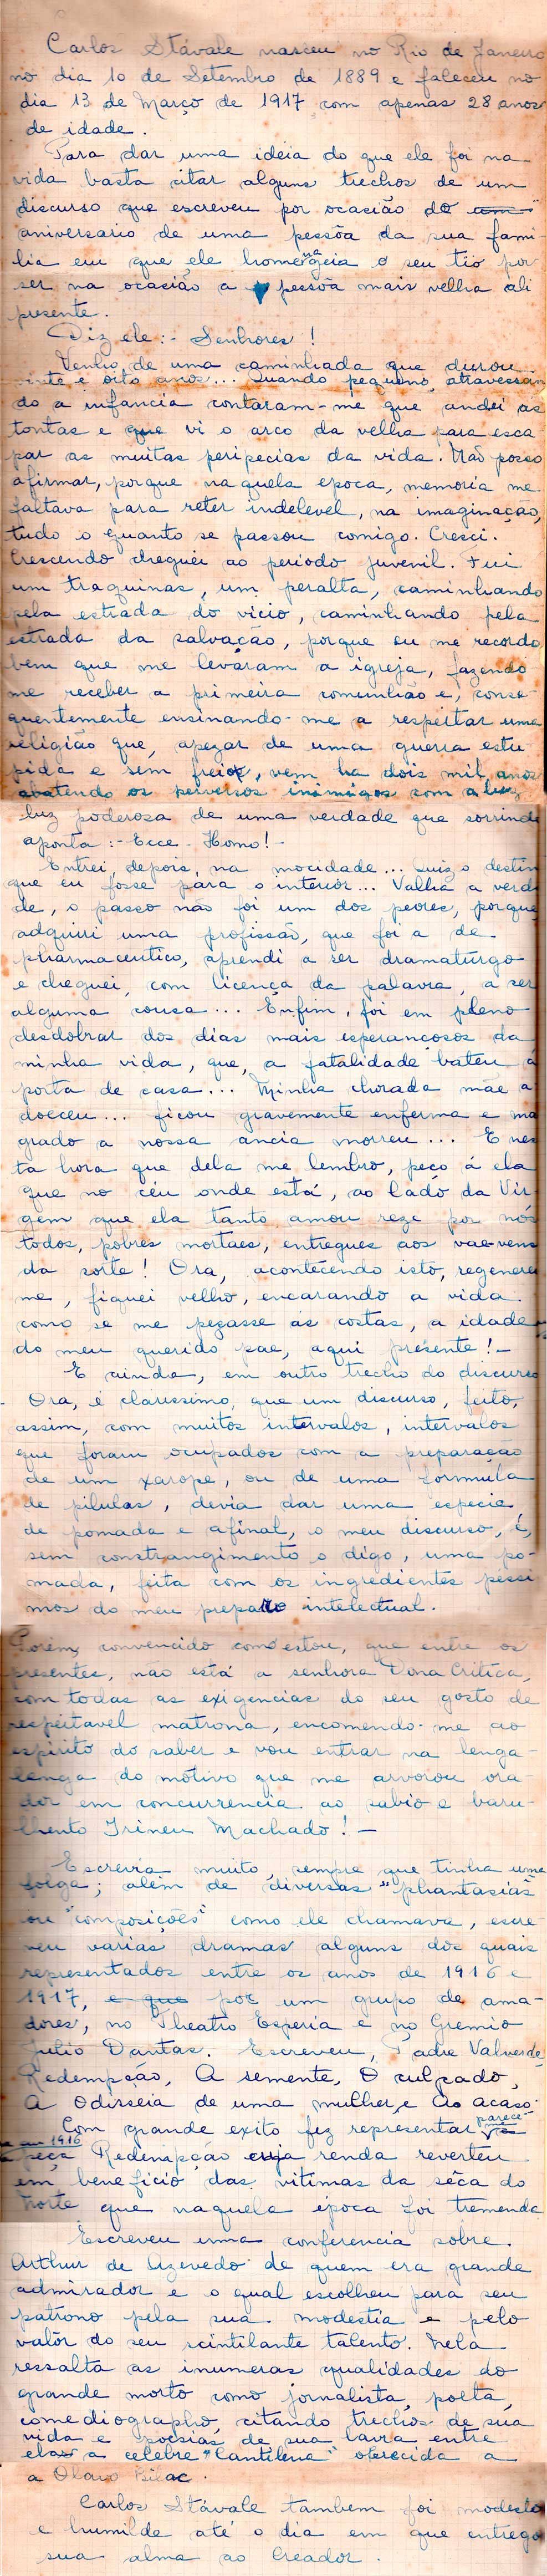 Carlos Stávale nasceu no Rio de Janeiro
no dia 10 de Setembro de 1889 e faleceu no
dia 13 de Março de 1917 com apenas 28 anos
de idade.
Para dar uma ideia do que ele foi na
vida basta citar alguns trechos de um
discurso que escreveu por ocasião do
aniversario de uma pessõa da sua fami-
lia em que ele homenageia o seu tio por
ser na ocasião a pessõa mais velha ali
presente.
Diz ele:- Senhores!
Venho de uma caminhada que durou
vinte e oito anos... Quando pequeno, atravessan
do a infancia contaram-me que andei as
tontas e que vi o arco da velha para esca
par as muitas peripecias da vida. Não posso
afirmar, porque naquela epoca, memoria me
faltava para reter indelevel, na imaginação,
tudo o quanto se passou comigo. Cresci.
Crescendo cheguei ao periodo juvenil. Fui
um traquinas, um peralta, caminhando
pela estrada do vicio, caminhando pela
estrada da salvação, porque eu me recordo
bem que me levaram a igreja, fazendo
me receber a primeira comunhão e, conse-
quentemente ensinando-me a respeitar uma
religião que, apezar de uma guerra estu
pida e sem freio, vem ha dois mil anos
abatendo os perversos inimigos com a luz
luz poderosa de uma verdade que sorrindo
aponta:- Ecce-Homo!-
Entrei, depois, na mocidade... Quiz o destin
que eu fosse para o interior... Valha a verda
de, o passo não foi um dos peores, porque
adquiri uma profissão, que foi a de
pharmaceutico, aprendi a ser dramaturgo
e cheguei, com licença da palavra, a ser
alguma cousa... Enfim, foi em pleno
desdobrar dos dias mais esperançosos da
minha vida, que, a fatalidade bateu a
porta de casa... Minha chorada mãe a
doeceu... ficou gravemente enferma e mal
grado a nossa ancia morreu... E nes
ta hora que dela me lembro, peço á ela
que no céu onde está, ao lado da Vir
gem que ela tanto amou reze por nós
todos, pobres mortaes, entregues aos vaevens
da sorte! Ora, acontecendo isto, regenerei
me, fiquei velho, encarando a vida.
como se me pezasse ás costas, a idade
do meu querido pae, aqui presente!-
E ainda, em outro trecho do discurso
Ora, é clarissimo, que um discurso, feito,
assim, com muitos intervalos, intervalos
que foram ocupados com a preparação
de um xarope, ou de uma formula
de pilulas, devia dar uma especie
de pomada e afinal, o meu discurso, é,
sem constrangimento o digo, uma po-
mada, feita com os ingredientes pessi
mos do meu preparo intelectual.
Porém, convencido como estou, que entre os
presentes, não está a senhora Dona Critica,
com todas as exigencias do seu gosto de
respeitavel matrona, encomendo-me ao
espirito do saber e vou entrar na lenga-
lenga do motivo que me arvorou ora-
dor em concurrencia ao sabio e baru-
lhento Irineu Machado!-
Escrevia muito, sempre que tinha uma
folga; além de diversas "phantasias"
ou "composições" como ele chamava, escre-
veu varias dramas alguns dos quais
representados entre os anos de 1916 e
1917, e que por um grupo de ama-
dores, no Theatro Esperia e no Gremio
Julio Dantas. Escreveu, Padre Valverde,
Redempção, A semente, O culpado,
A Odisseia de uma mulher, e Ao acaso.
Com grande exito fez representar parece-me
em 1916 a peça Redempção cuja renda reverteu
em beneficio das vitimas da sêca do
Norte que naquela época foi tremenda
Escreveu uma conferencia sobre
Arthur de Azevedo de quem era grande
admirador e o qual escolheu para seu
patrono pela sua modestia e pelo
valôr do seu scintilante talento. Nela
ressalta as inumeras qualidades do
grande morto como jornalista, poeta,
comediographo, citando trechos de sua
vida e poesias de sua lavra entre
elas a celebre "Cantilena" oferecida a
a Olavo Bilac.
Carlos Stávale tambem foi modesto
e humilde até o dia em que entregou
sua alma ao Creador.